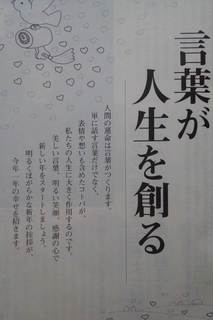 言葉が
人生を創る
人間の運命は言葉がつくります。
単に話す言葉だけでなく、
表情や想いも含めたコトバが、
私たちの人生に大きく作用するのです。
美しい言葉、明るい笑顔、感謝の心で
新しい年をスタートしましょう。
明るくほがらかな新年の挨拶が、
今年一年の幸せを招きます。